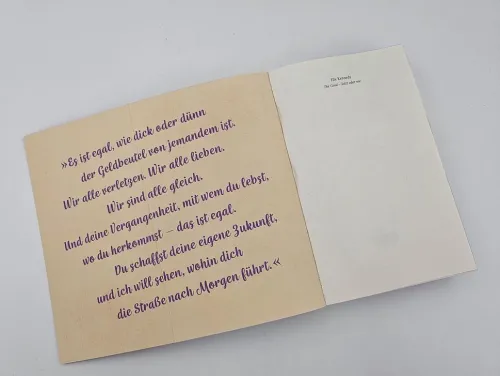 »Es ist egal, wie dick oder dünn
der Geldbeutel von jemandem ist.
Wir alle verletzen. Wir alle lieben.
Wir sind alle gleich.
Und deine Vergangenheit, mit wem du lebst,
wo du herkommst – das ist egal.
Du schaffst deine eigene Zukunft,
und ich will sehen, wohin dich
die Straße nach Morgen führt.«